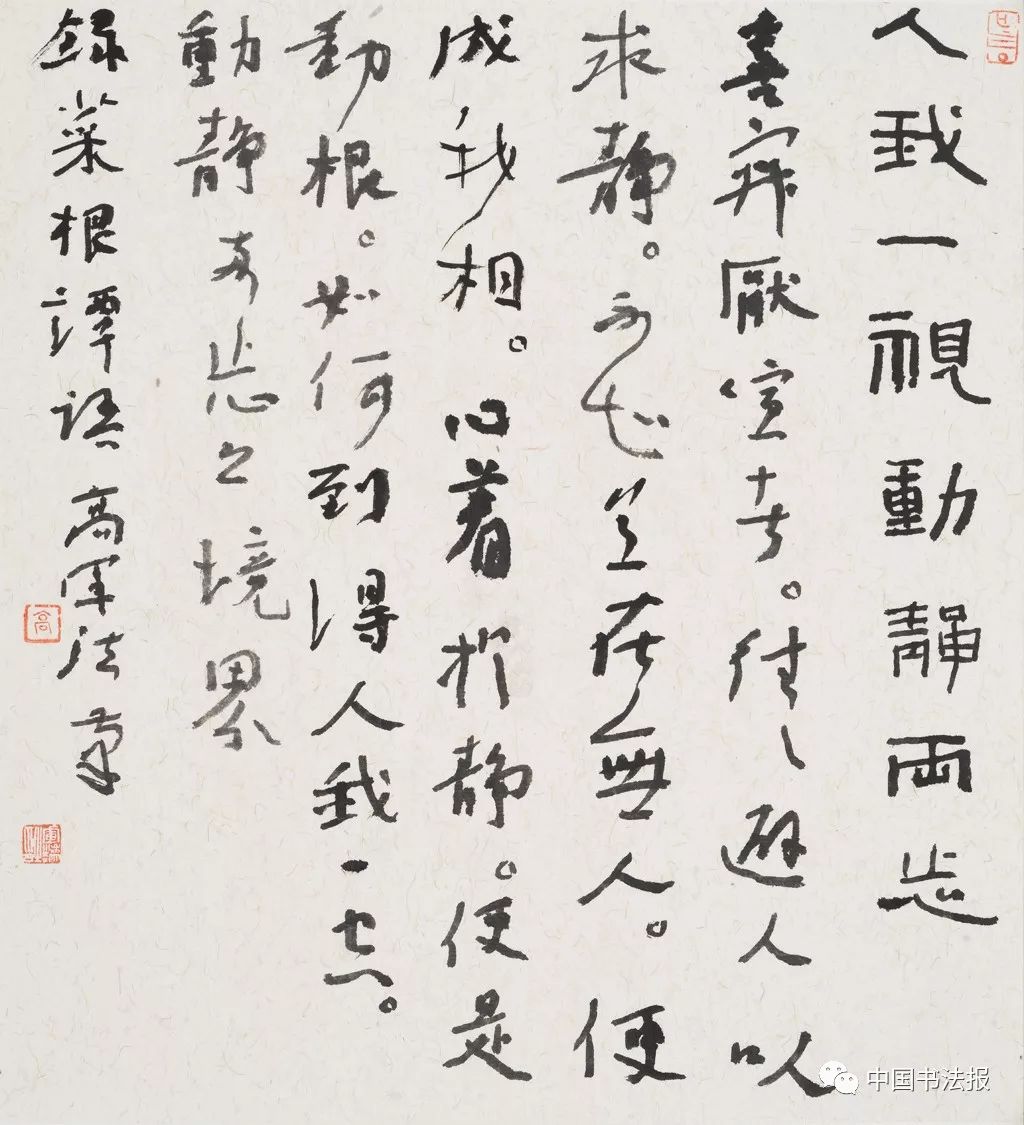 人我一視動靜兩忘
喜寂厭喧者。往〻避人以
求靜。不知意在無人。便
成我相。心着於靜。便是
動根。如何到得人我一。
動靜兩忘之境界
錄菜根譚語 高軍法
高
中国书法报